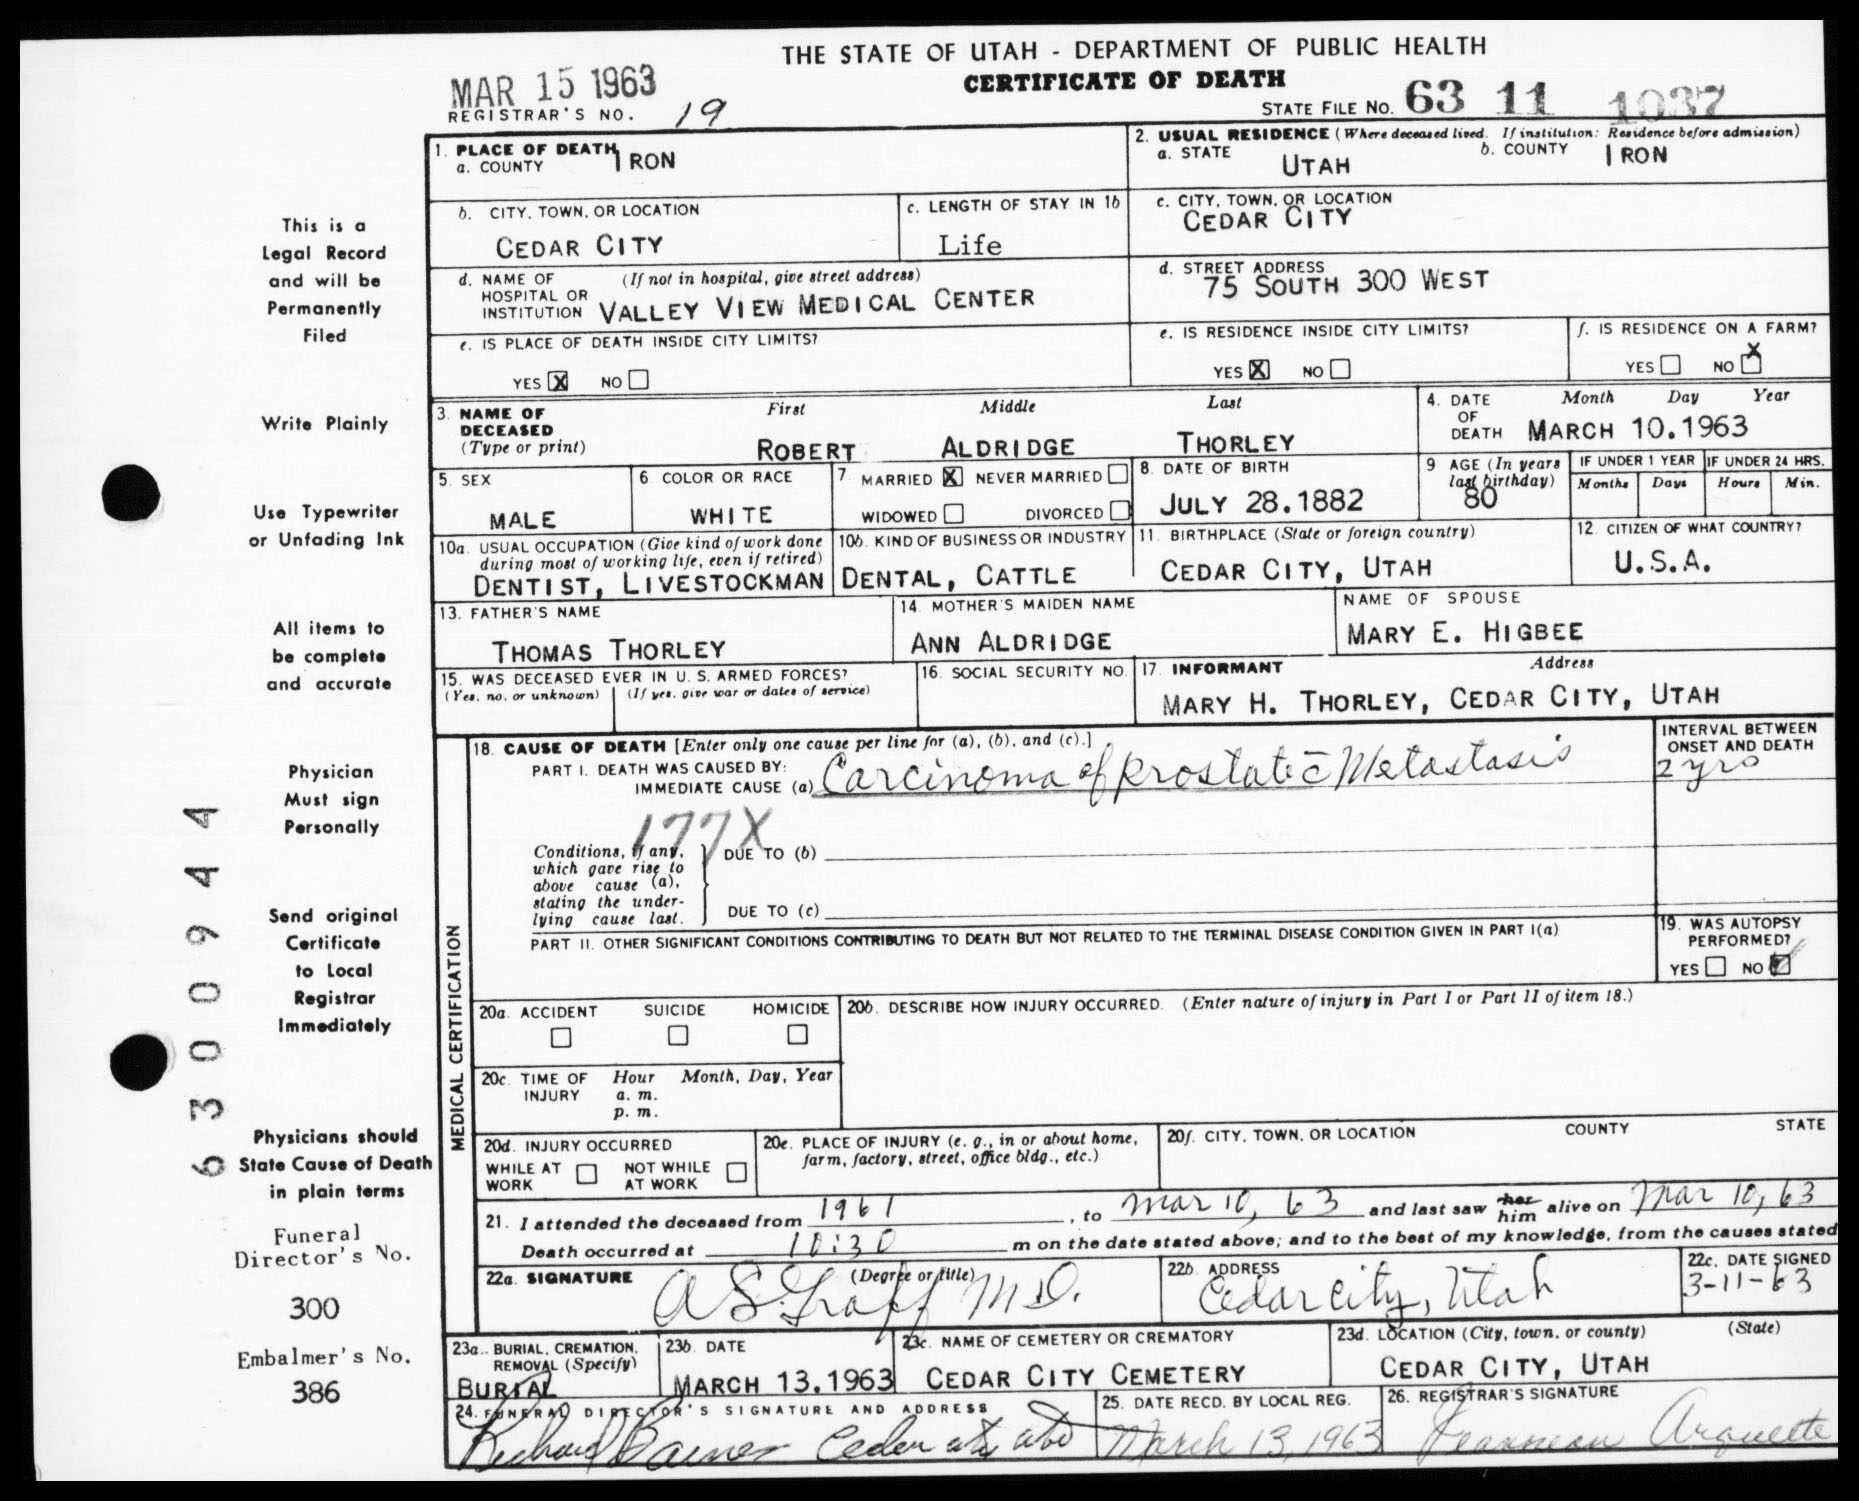 THE STATE OF UTAH - DEPARTMENT OF PUBLIC HEALTH
CERTIFICATE OF DEATH
MAR 15 1963
REGISTRAR'S NO. 19
STATE FILE NO. 63 11 1037
1. PLACE OF DEATH
a. COUNTY IRON
2. USUAL RESIDENCE (Where deceased lived. If institution: Residence before admission)
a. STATE UTAH b. COUNTY IRON
b. CITY, TOWN, OR LOCATION
CEDAR CITY
c. LENGTH OF STAY IN 1b
Life
c. CITY, TOWN, OR LOCATION
CEDAR CITY
d. NAME OF HOSPITAL OR INSTITUTION (If not in hospital, give street address)
VALLEY VIEW MEDICAL CENTER
d. STREET ADDRESS
75 SOUTH 300 WEST
e. IS PLACE OF DEATH INSIDE CITY LIMITS?
YES X NO
e. IS RESIDENCE INSIDE CITY LIMITS?
YES X NO
f. IS RESIDENCE ON A FARM?
YES NO X
3. NAME OF DECEASED (Type or print)
First Middle Last
ROBERT ALDRIDGE THORLEY
4. DATE OF DEATH Month Day Year
MARCH 10.1963
5. SEX
MALE
6 COLOR OR RACE
WHITE
7 MARRIED X NEVER MARRIED
WIDOWED DIVORCED
8. DATE OF BIRTH
JULY 28.1882
9 AGE (In years last birthday)
80
IF UNDER 1 YEAR
Months Days
IF UNDER 24 HRS.
Hours Min.
10a. USUAL OCCUPATION (Give kind of work done during most of working life, even if retired)
DENTIST, LIVESTOCKMAN
10b. KIND OF BUSINESS OR INDUSTRY
DENTAL, CATTLE
11. BIRTHPLACE (State or foreign country)
CEDAR CITY, UTAH
12. CITIZEN OF WHAT COUNTRY?
U.S.A.
13. FATHER'S NAME
THOMAS THORLEY
14. MOTHER'S MAIDEN NAME
ANN ALDRIDGE
NAME OF SPOUSE
MARY E. HIGBEE
15. WAS DECEASED EVER IN U. S. ARMED FORCES?
(Yes, no, or unknown) (If yes, give war or dates of service)
16. SOCIAL SECURITY NO.
17. INFORMANT Address
MARY H. THORLEY, CEDAR CITY, UTAH
MEDICAL CERTIFICATION
18. CAUSE OF DEATH [Enter only one cause per line for (a), (b), and (c).]
PART I. DEATH WAS CAUSED BY:
IMMEDIATE CAUSE (a) Carcinoma of Prostate c̄ Metastasis
INTERVAL BETWEEN ONSET AND DEATH
2 yrs
177X
Conditions, if any, which gave rise to above cause (a), stating the underlying cause last.
DUE TO (b)
DUE TO (c)
PART II. OTHER SIGNIFICANT CONDITIONS CONTRIBUTING TO DEATH BUT NOT RELATED TO THE TERMINAL DISEASE CONDITION GIVEN IN PART I(a)
19. WAS AUTOPSY PERFORMED?
YES NO
20a. ACCIDENT SUICIDE HOMICIDE
20b. DESCRIBE HOW INJURY OCCURRED. (Enter nature of injury in Part I or Part II of item 18.)
20c. TIME OF INJURY Hour Month, Day, Year
a. m.
p. m.
20d. INJURY OCCURRED
WHILE AT WORK NOT WHILE AT WORK
20e. PLACE OF INJURY (e. g., in or about home, farm, factory, street, office bldg., etc.)
20f. CITY, TOWN, OR LOCATION COUNTY STATE
21. I attended the deceased from 1961, to Mar 10, 63 and last saw her him alive on Mar 10, 63
Death occurred at 10:30 m on the date stated above; and to the best of my knowledge, from the causes stated
22a. SIGNATURE (Degree or title)
A S Graff M.D.
22b. ADDRESS
Cedar City, Utah
22c. DATE SIGNED
3-11-63
23a. BURIAL, CREMATION, REMOVAL (Specify)
BURIAL
23b. DATE
MARCH 13.1963
23c. NAME OF CEMETERY OR CREMATORY
CEDAR CITY CEMETERY
23d. LOCATION (City, town, or county) (State)
CEDAR CITY, UTAH
24. FUNERAL DIRECTOR'S SIGNATURE AND ADDRESS
Richard Barnes Cedar
25. DATE RECD. BY LOCAL REG.
March 13, 1963
26. REGISTRAR'S SIGNATURE
Arquette
This is a
Legal Record
and will be
Permanently
Filed
Write Plainly
Use Typewriter
or Unfading Ink
All items to
be complete
and accurate
Physician
Must sign
Personally
Send original
Certificate
to Local
Registrar
Immediately
Physicians should
State Cause of Death
in plain terms
Funeral
Director's No.
300
Embalmer's No.
386
6300944